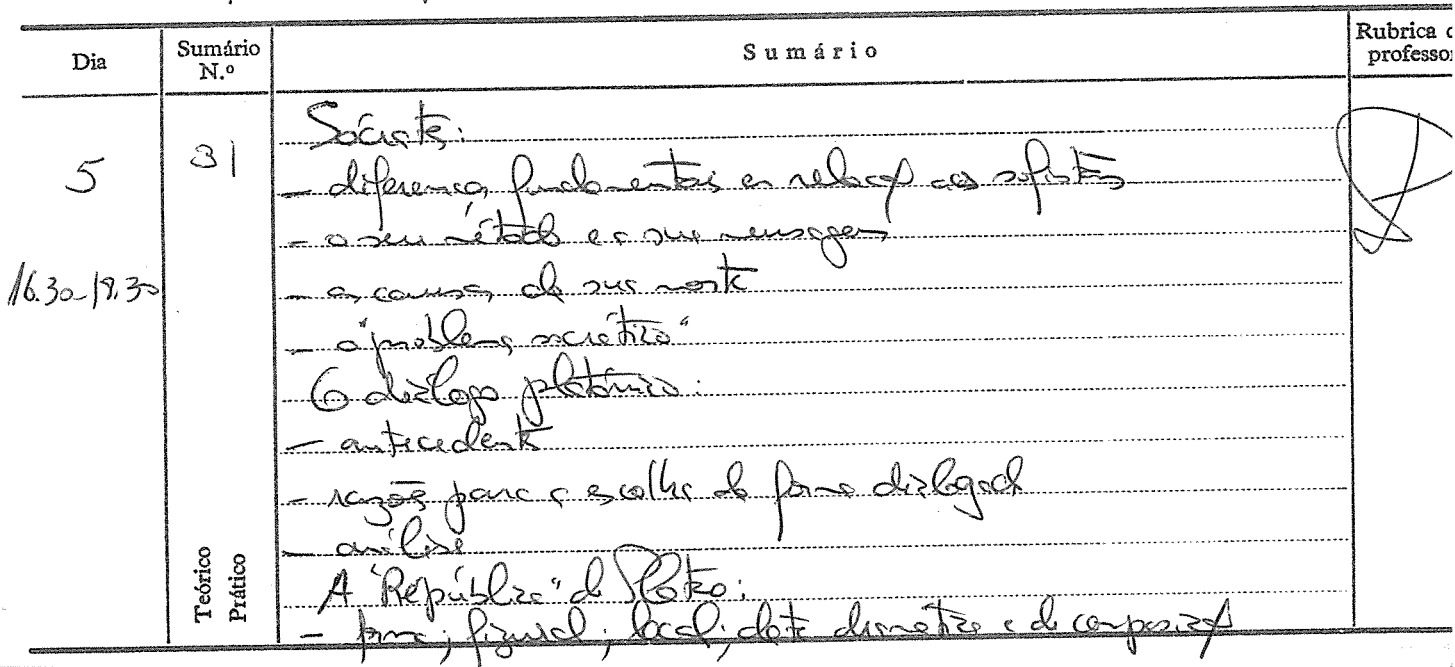 Dia
Sumário N.º
Sumário
Rubrica d
professor
5
31
16.30-18.30
Sócrates:
- diferenças fundamentais em relação aos sofistas
- o seu método e a sua mensagem
- as causas da sua morte
- o "problema socrático"
O diálogo platónico:
- antecedentes
- razões para a escolha da forma dialogada
- análise
A "República" de Platão:
- ; figuras; local; data dramática e de composição
Teórico
Prático